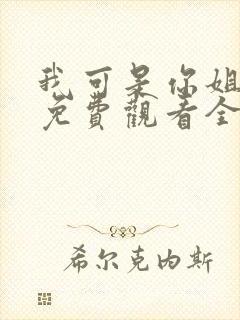 我可是你姐
免費觀看全
希尔克内斯